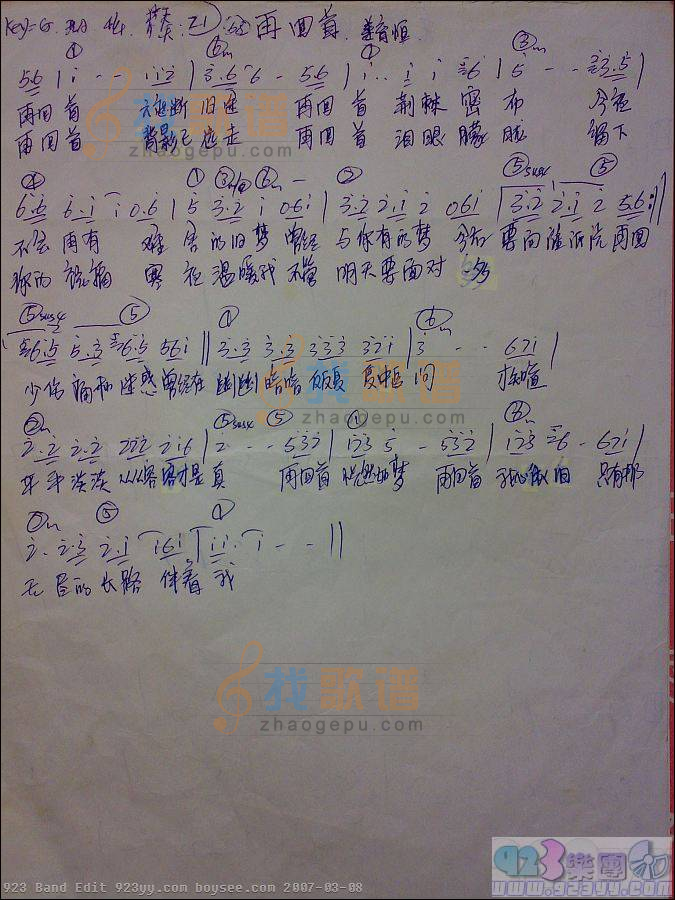 Key=G 再回首 姜育恒
① ⑥m ① ③m
5 6 | i - - i i 2 | 3 . 6 6 - 5 6 | i . . i i 6 | 5 - - 3 . 5
再回首 云遮断 旧途 再回首 荆棘密布 今夜
再回首 背影已远走 再回首 泪眼朦胧 留下
④ ① ⑥m ② ⑤sus4 ⑤
6 . 6 6 . i i 0 . 6 | 5 3 . 2 i 0 6 i | 3 . 2 2 . i 2 0 6 i | 3 . 2 2 . i 2 5 6 :||
不会再有 难 的旧梦 曾经 与你有的梦 今后要向 再回
你的祝福 寒夜温暖我 不管 明天要面对 多
⑤sus4 ⑤ ① ⑥m
6 . 5 5 . 3 6 . 5 5 6 i || 3 . 3 3 . 3 3 3 3 3 2 i | 3 - - 6 7 i |
少伤痛和迷惑 曾经在 幽幽暗暗反反复复中 问 才知道
②m ⑤sus4 ⑤ ① ⑥m
2 . 2 2 . 2 2 2 2 2 i 6 | 2 - - 5 3 2 | i 2 3 5 - 5 3 2 | i 2 3 6 - 6 7 i |
平平淡淡从从容容才是真 再回首 恍然如梦 再回首 我心依旧 只有那
②m ⑤ ①
2 . 2 . 3 2 . i i 6 i | i i . i - - ||
无尽的长路 伴着我
找歌谱
zhaogepu.com
找歌谱
zhaogepu.com
找歌谱
zhaogepu.com
923樂團
www.923yy.com
923 Band Edit 923yy.com boysee.com 2007-03-08